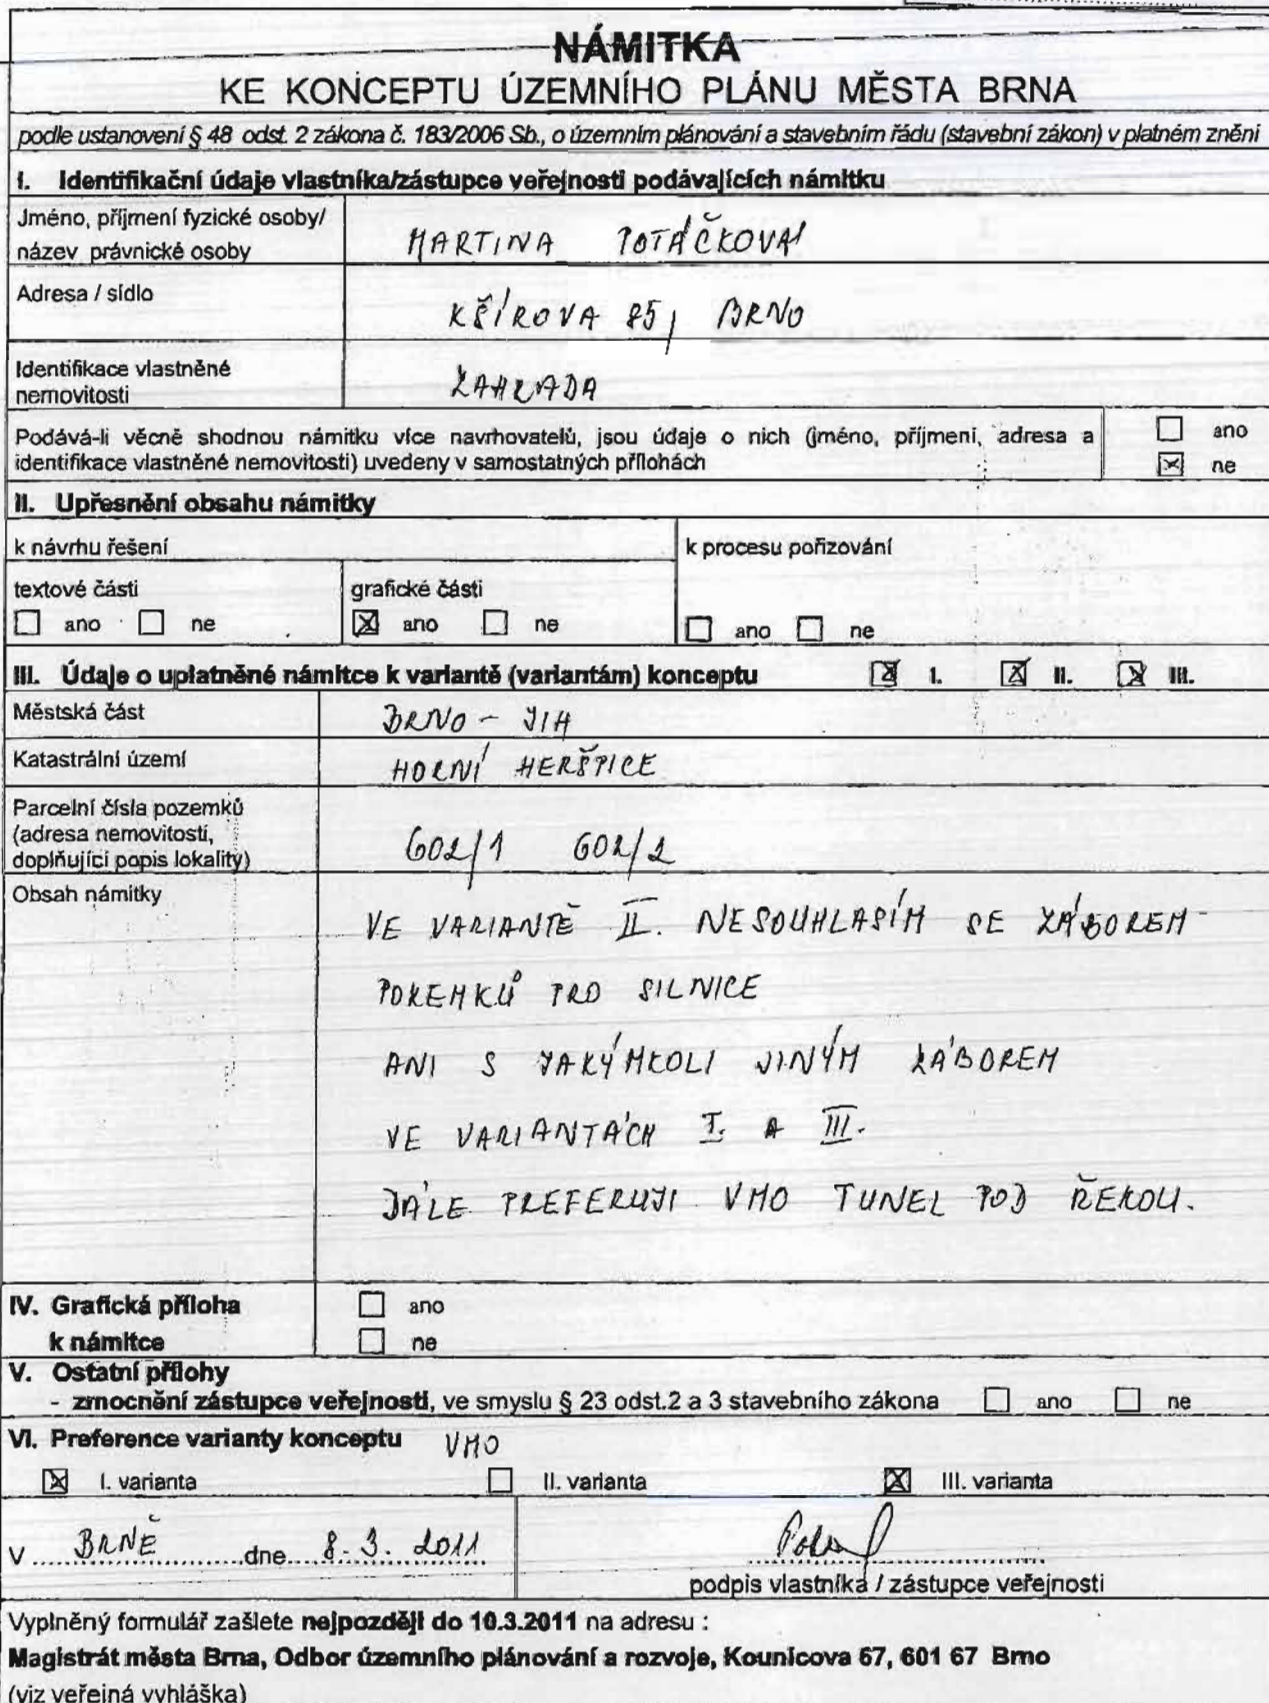 NÁMITKA
KE KONCEPTU ÚZEMNÍHO PLÁNU MĚSTA BRNA
podle ustanovení § 48 odst. 2 zákona č. 183/2006 Sb., o územním plánování a stavebním řádu (stavební zákon) v platném znění
I. Identifikační údaje vlastníka/zástupce veřejnosti podávajících námitku
Jméno, příjmení fyzické osoby/
název právnické osoby
MARTINA POTÁČKOVÁ
Adresa / sídlo
KŠÍROVA 85, BRNO
Identifikace vlastněné
nemovitosti
ZAHRADA
Podává-li věcně shodnou námitku více navrhovatelů, jsou údaje o nich (jméno, příjmení, adresa a
identifikace vlastněné nemovitosti) uvedeny v samostatných přílohách
ano
ne
II. Upřesnění obsahu námitky
k návrhu řešení
k procesu pořizování
textové části
grafické části
ano ne
ano ne
ano ne
III. Údaje o uplatněné námitce k variantě (variantám) konceptu I. II. III.
Městská část
BRNO - JIH
Katastrální území
HORNÍ HERŠPICE
Parcelní čísla pozemků
(adresa nemovitosti,
doplňující popis lokality)
602/1 602/2
Obsah námitky
VE VARIANTĚ II. NESOUHLASÍM SE ZÁBOREM
POZEMKŮ PRO SILNICE
ANI S JAKÝMKOLI JINÝM ZÁBOREM
VE VARIANTÁCH I. A III.
DÁLE PREFERUJI VMO TUNEL POD ŘEKOU.
IV. Grafická příloha
k námitce
ano
ne
V. Ostatní přílohy
- zmocnění zástupce veřejnosti, ve smyslu § 23 odst.2 a 3 stavebního zákona ano ne
VI. Preference varianty konceptu VMO
I. varianta II. varianta III. varianta
V BRNĚ dne 8. 3. 2011
podpis vlastníka / zástupce veřejnosti
Vyplněný formulář zašlete nejpozději do 10.3.2011 na adresu :
Magistrát města Brna, Odbor územního plánování a rozvoje, Kounicova 67, 601 67 Brno
(viz veřejná vyhláška)